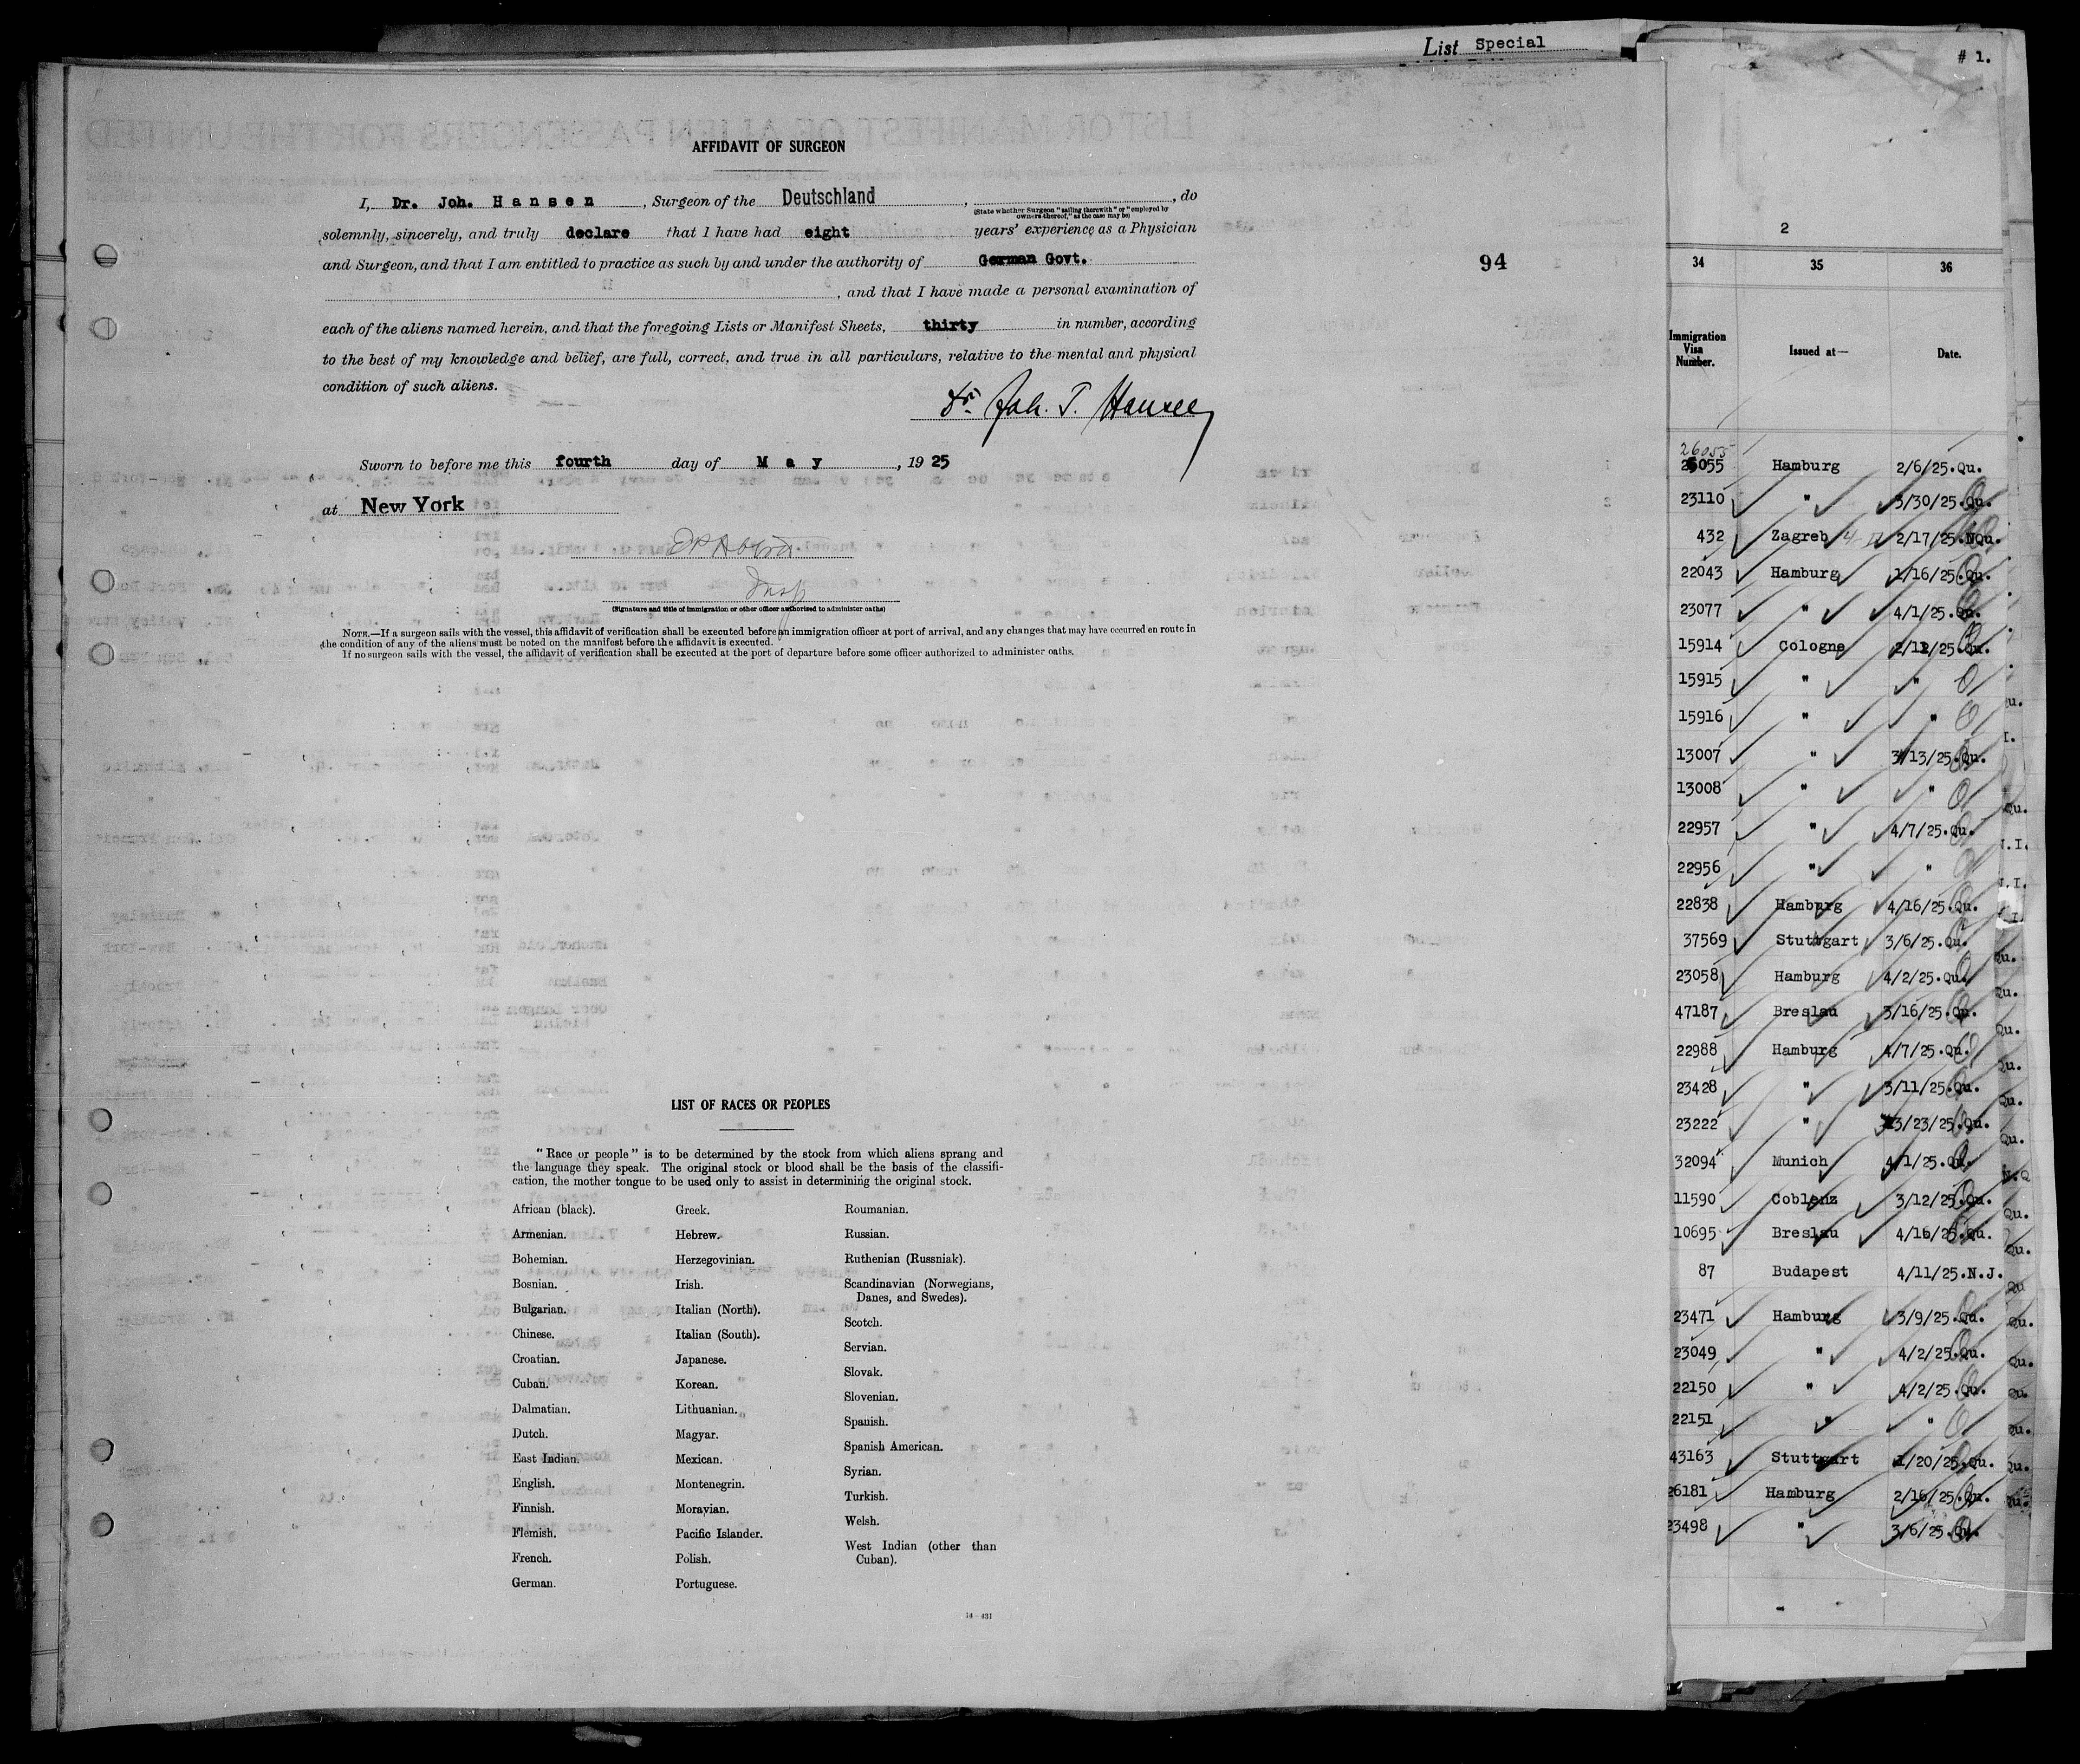 List Special
# 1.
AFFIDAVIT OF SURGEON
I, Dr. Joh. Hansen, Surgeon of the Deutschland, , do
(State whether Surgeon "sailing therewith" or "employed by owners thereof," as the case may be)
solemnly, sincerely, and truly declare that I have had eight years' experience as a Physician
and Surgeon, and that I am entitled to practice as such by and under the authority of German Govt.
, and that I have made a personal examination of
each of the aliens named herein, and that the foregoing Lists or Manifest Sheets, thirty in number, according
to the best of my knowledge and belief, are full, correct, and true in all particulars, relative to the mental and physical
condition of such aliens.
Dr. Joh. T. Hansen
Sworn to before me this fourth day of May, 1925
at New York
Insp
(Signature and title of immigration or other officer authorized to administer oaths)
NOTE.—If a surgeon sails with the vessel, this affidavit of verification shall be executed before an immigration officer at port of arrival, and any changes that may have occurred en route in
the condition of any of the aliens must be noted on the manifest before the affidavit is executed.
If no surgeon sails with the vessel, the affidavit of verification shall be executed at the port of departure before some officer authorized to administer oaths.
94
LIST OF RACES OR PEOPLES
"Race or people" is to be determined by the stock from which aliens sprang and
the language they speak. The original stock or blood shall be the basis of the classifi-
cation, the mother tongue to be used only to assist in determining the original stock.
African (black).
Armenian.
Bohemian.
Bosnian.
Bulgarian.
Chinese.
Croatian.
Cuban.
Dalmatian.
Dutch.
East Indian.
English.
Finnish.
Flemish.
French.
German.
Greek.
Hebrew.
Herzegovinian.
Irish.
Italian (North).
Italian (South).
Japanese.
Korean.
Lithuanian.
Magyar.
Mexican.
Montenegrin.
Moravian.
Pacific Islander.
Polish.
Portuguese.
Roumanian.
Russian.
Ruthenian (Russniak).
Scandinavian (Norwegians,
Danes, and Swedes).
Scotch.
Servian.
Slovak.
Slovenian.
Spanish.
Spanish American.
Syrian.
Turkish.
Welsh.
West Indian (other than
Cuban).
14—431
2
34 35 36
Immigration Visa Number. Issued at— Date.
26055
26055 Hamburg 2/6/25.Qu.
23110 " 3/30/25.Qu.
432 Zagreb 2/17/25.NQu.
22043 Hamburg 1/16/25.Qu.
23077 " 4/1/25.Qu.
15914 Cologne 2/12/25.Qu.
15915 " "
15916 " "
13007 " 3/13/25.Qu.
13008 " "
22957 " 4/7/25.Qu.
22956 " "
22838 Hamburg 4/16/25.Qu.
37569 Stuttgart 3/6/25.Qu.
23058 Hamburg 4/2/25.Qu.
47187 Breslau 3/16/25.Qu.
22988 Hamburg 4/7/25.Qu.
23428 " 3/11/25.Qu.
23222 " 3/23/25.Qu.
32094 Munich 4/1/25.Qu.
11590 Coblenz 3/12/25.Qu.
10695 Breslau 4/16/25.Qu.
87 Budapest 4/11/25.N.J.
23471 Hamburg 3/9/25.Qu.
23049 " 4/2/25.Qu.
22150 " 4/2/25.Qu.
22151 " "
43163 Stuttgart 1/20/25.Qu.
26181 Hamburg 2/16/25.Qu.
23498 " 3/6/25.Qu.